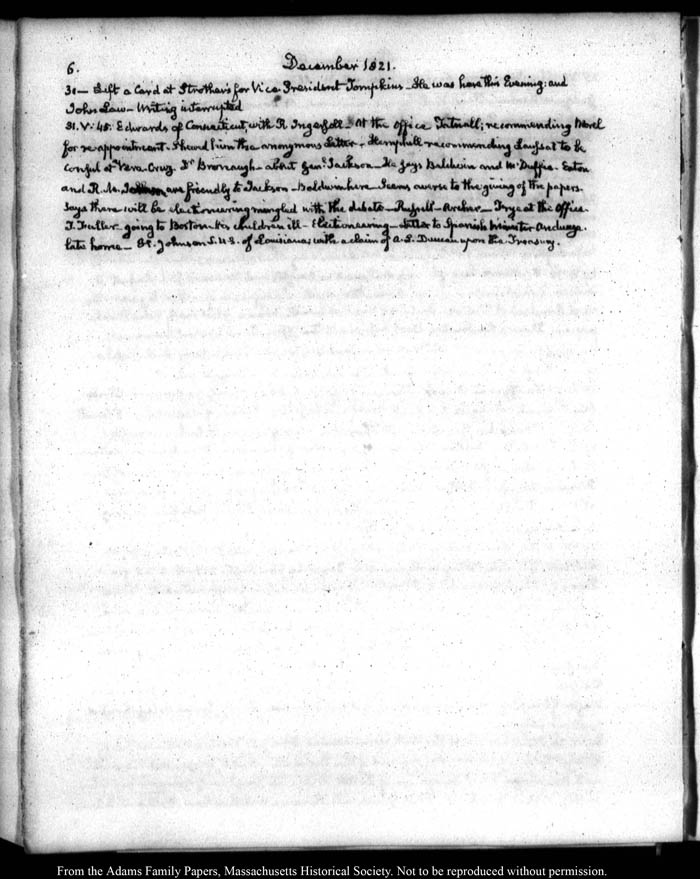 6. December 1821.
30— Left a Card at Strother's for Vice President Tompkins_ He was here this Evening: and
John Law_ Writing interrupted
31. V: 45. Edwards of Connecticut, with R. Ingersoll_ At the Office Tatnall; recommending
for re-appointment. I shewd him the anonymous Letter_ Hemphill recommending to be
Consul at Vera-Cruz. Dr Bronaugh_ about Genl. Jackson. He says Baldwin and McDuffie. Eaton
and R. M. Johnson are friendly to Jackson_ Baldwin here_ Seems averse to the giving of the papers.
Says there will be electioneering mingled with the debate_ Russell_ Archer_ Frye at the Office.
T. Fuller going to Boston_ his children ill_ Electioneering_ Letter to Spanish Minister Anduaga.
late home_ Johnson S.U.S. of Louisiana; with a claim of A. S. Duncan upon the Treasury.
From the Adams Family Papers, Massachusetts Historical Society. Not to be reproduced without permission.